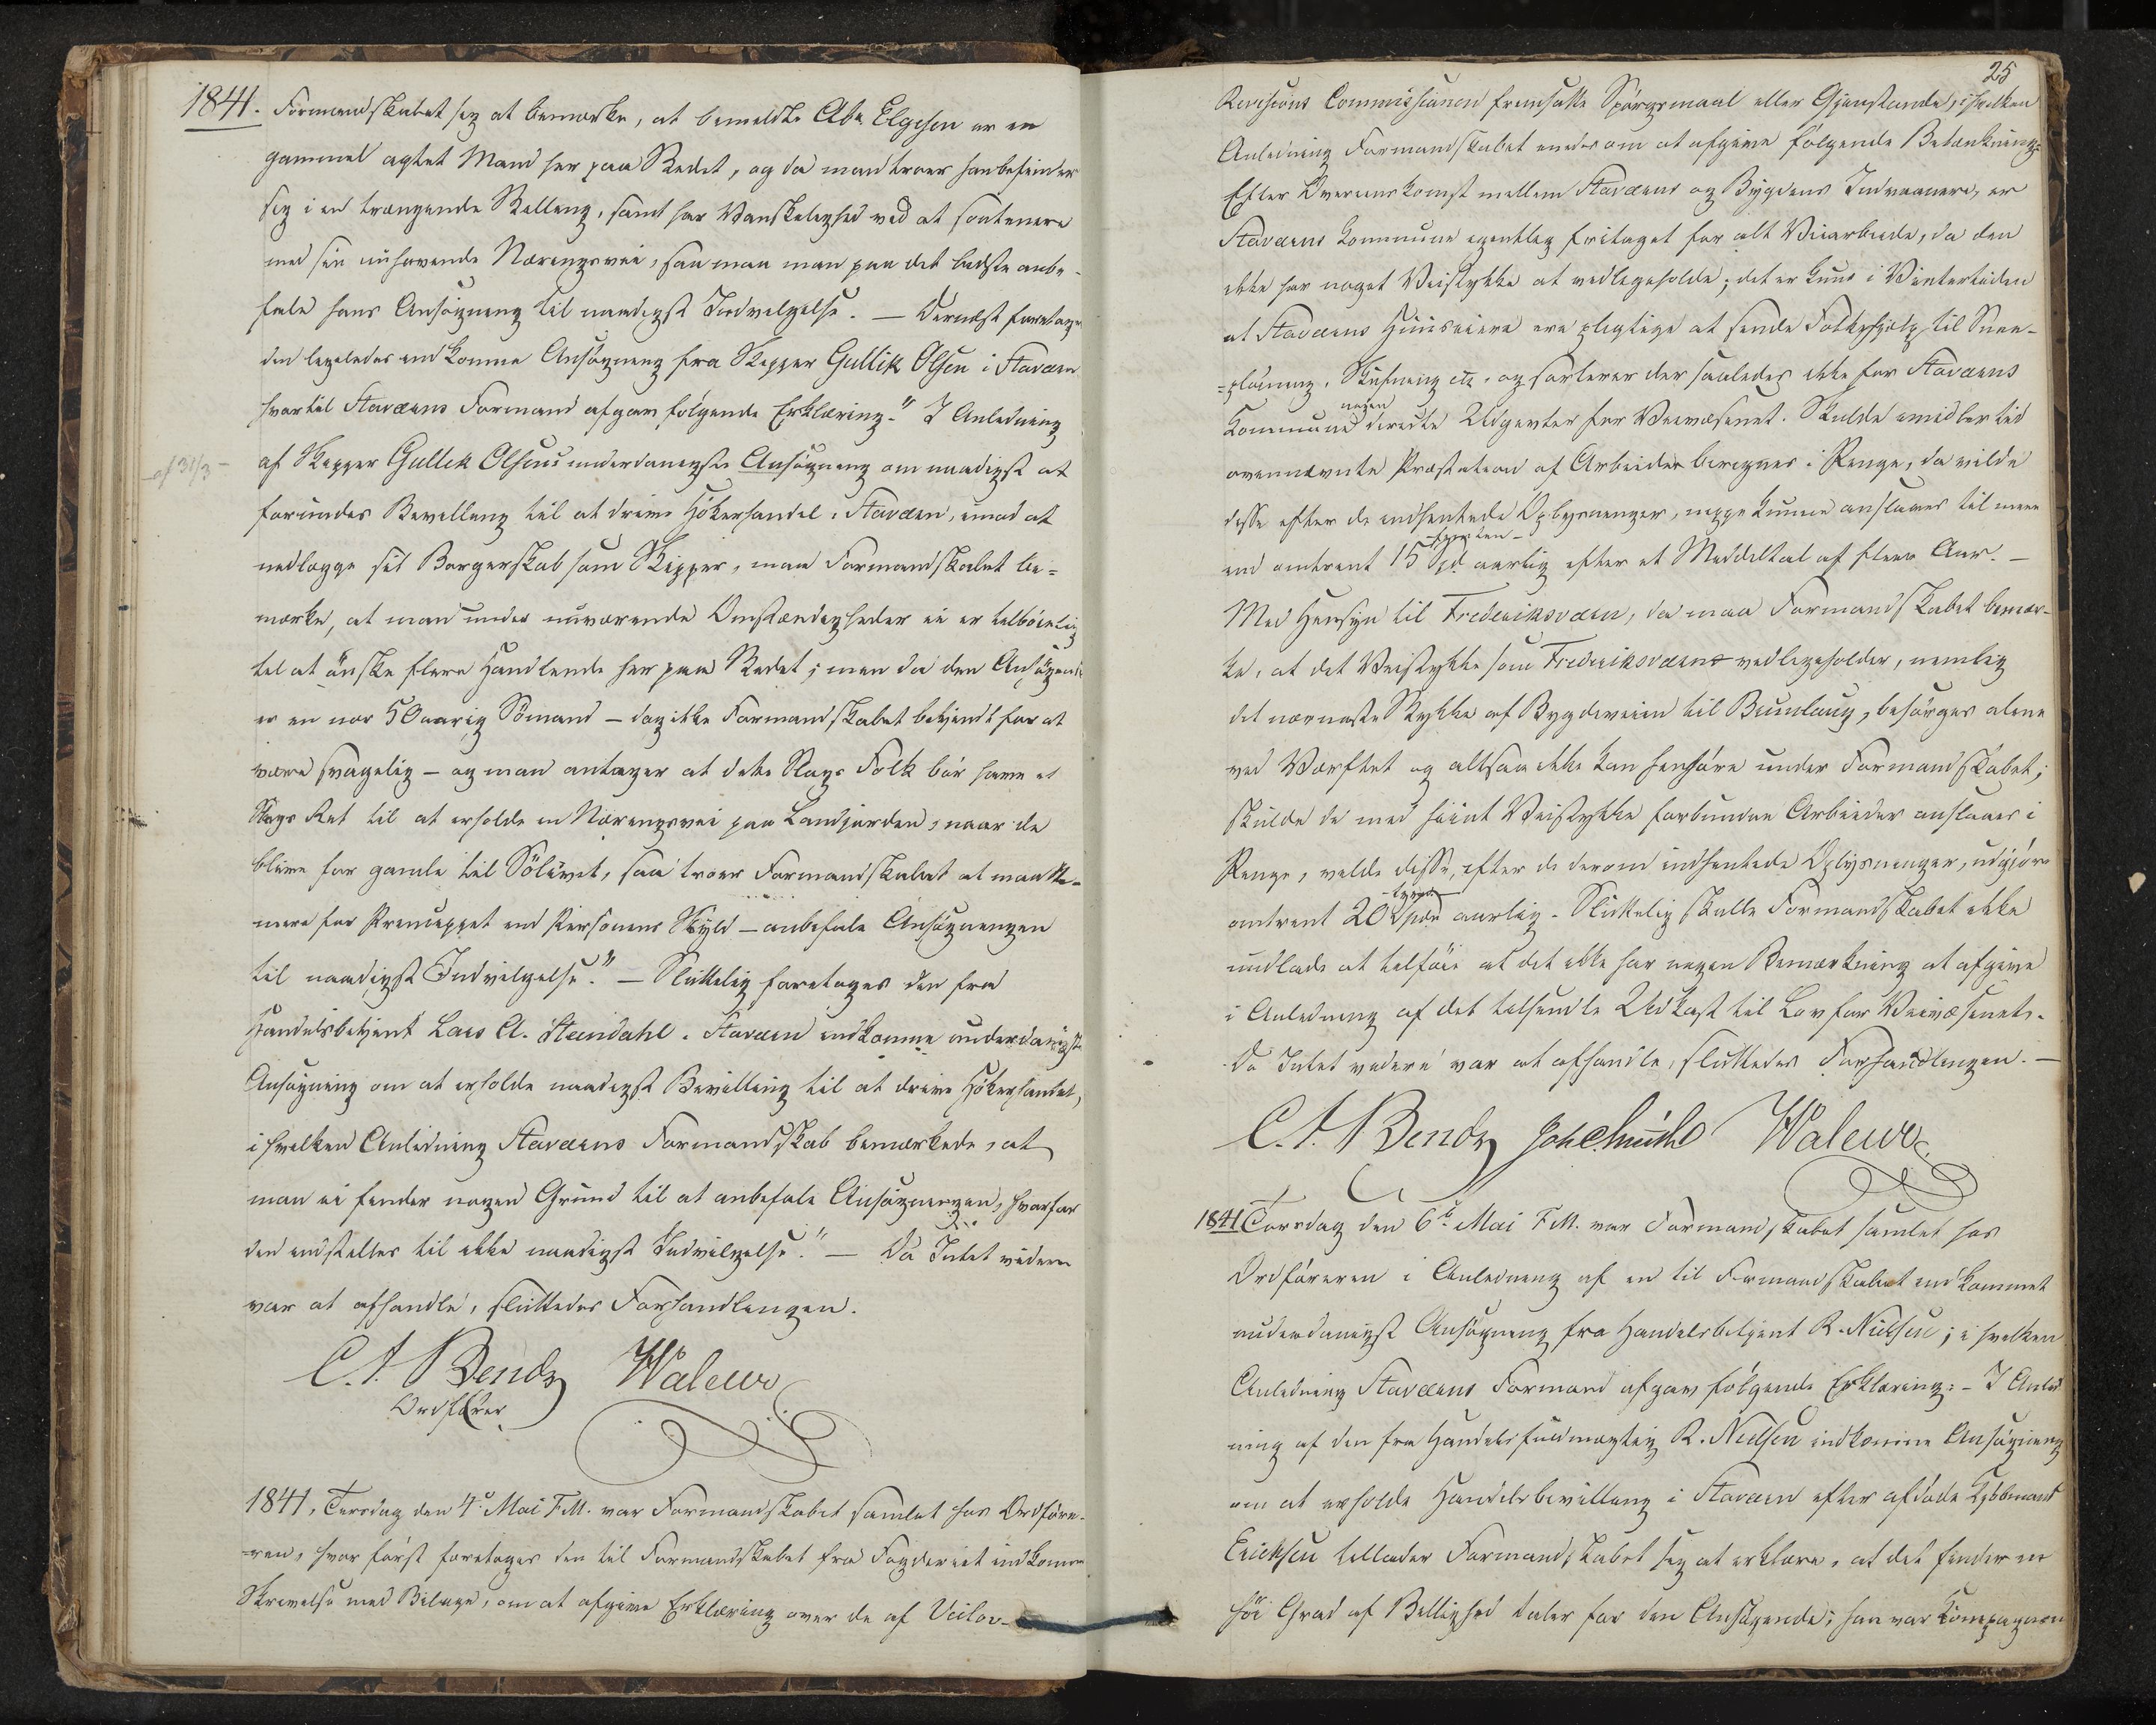 1841. Formandskabet sig at bemærke, at bemeldte Abr. Elgesen er en
gammel agtet Mand her paa Stedet, og da man troer han befinder
sig i en trængende Stilling, samt har Vanskelighed ved at soutenere
med sin nuhavende Næringsvei, saa maa man paa det bedste anbe-
fale hans Ansøgning til naadigst Indvilgelse. — Dernæst foretages
den ligeledes indkomne Ansøgning fra Skipper Gullik Olsen i Staværn
hvortil Staværns Formand afgav følgende Erklæring: "I Anledning
af 31/3 -
af Skipper Gullik Olsens underdanigste Ansøgning om naadigst at
forundes Bevilling til at drive Høkerhandel i Staværn, imod at
nedlægge sit Borgerskab som Skipper, maa Formandskabet be-
mærke, at man under nuværende Omstændigheder ei er tilbøielig
til at ønske flere Handlende her paa Stedet; men da den Ansøgende
er en nær 50 aarig Sømand — dog ikke Formandskabet bekjendt for at
være svagelig — og man antager at dette Slags Folk bør have et
Slags Ret til at erholde en Næringsvei paa Landjorden, naar de
blive for gamle til Sølivet, saa troer Formandskabet at maatte —
mere for Princippet end Personens Skyld — anbefale Ansøgningen
til naadigst Indvilgelse." — Sluttelig foretages den fra
Handelsbetjent Lars A. Steindahl i Staværn indkomne underdanigste
Ansøgning om at erholde naadigst Bevilling til at drive Høkerhandel,
i hvilken Anledning Staværns Formandskab bemærkede, at
man ei finder nogen Grund til at anbefale Ansøgningen, hvorfor
den indstilles til ikke naadigst Indvilgelse." — Da Intet videre
var at afhandle, sluttedes Forhandlingen.
C. A. Bendz Walewo
Ordfører
1841, Tirsdag den 4de Mai F.M. var Formandskabet samlet hos Ordføre-
ren, hvor først foretages den til Formandskabet fra Fogderiet indkomne
Skrivelse med Bilage, om at afgive Erklæring over de af Veilov-
25
Revisions Commissionen fremsatte Spørgsmaal eller Gjenstande, i hvilken
Anledning Formandskabet enedes om at afgive følgende Betænkning:
Efter Overeenskomst mellem Staværns og Bygdens Indvaanere, er
Staværns Kommune egentlig fritaget for alt Veiarbeide, da den
ikke har noget Veistykke at vedligeholde; det er kuns i Vintertiden
at Staværns Huuseiere ere pligtige at sende Folkehjelp til Snee-
pløining, Skufning etc. og sorterer der saaledes ikke for Staværns
nogen
Kommune directe Udgifter for Veivæsenet. Skulde imidlertid
ovennævnte Præstation af Arbeider beregnes i Penge, da vilde
disse efter de indhentede Oplysninger, neppe kunne anslaaes til mere
-femten-
end omtrent 15 Spd aarlig efter et Middeltal af flere Aar. —
Med Hensyn til Frederiksværn, da maa Formandskabet bemær-
ke, at det Veistykke som Frederiksværns vedligeholder, nemlig
det nærmeste Stykke af Bygdeveien til Brunlaug, besørges alene
ved Værftet og altsaa ikke kan henhøre under Formandskabet;
skulde de med hiint Veistykke forbundne Arbeider anslaaes i
Penge, vilde disse, efter de derom indhentede Oplysninger, udgjøre
-tyve-
omtrent 20 Spdr aarlig. Sluttelig skulle Formandskabet ikke
undlade at tilføie at det ikke har nogen Bemærkning at afgive
i Anledning af det tilsendte Udkast til Lov for Veivæsenet.
Da Intet videre var at afhandle, sluttedes Forhandlingen. —
C. A. Bendz Walewo
1841 Torsdag den 6te Mai F.M. var Formandskabet samlet hos
Ordføreren i Anledning af en til Formandskabet indkommet
underdanigst Ansøgning fra Handelsbetjent R. Nielsen; i hvilken
Anledning Staværns Formand afgav følgende Erklæring: — I Anled-
ning af den fra Handelsfuldmægtig R. Nielsen indkomne Ansøgning
om at erholde Handelsbevilling i Staværn efter afdøde Kjøbmand
Ericksen tillader Formandskabet sig at erklære, at det finder en
høi Grad af Billighed taler for den Ansøgende; han var Kompagnon